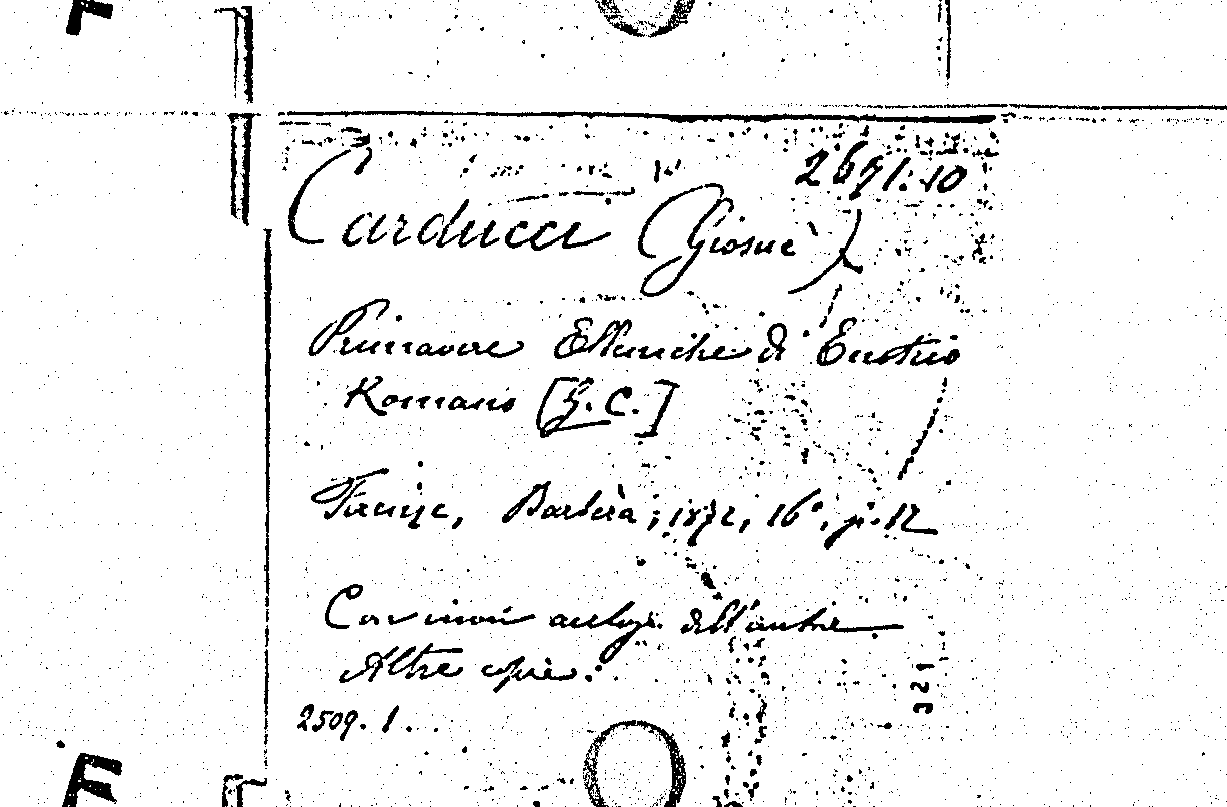 2691.10
Carducci (Giosuè)
Primavere Elleniche di Enotrio
Romano [G. C.]
Firenze, Barbèra, 1872, 16°, p. 12
Con invii autogr. dell'autore
Altre copie:
2509. 1.
321
F